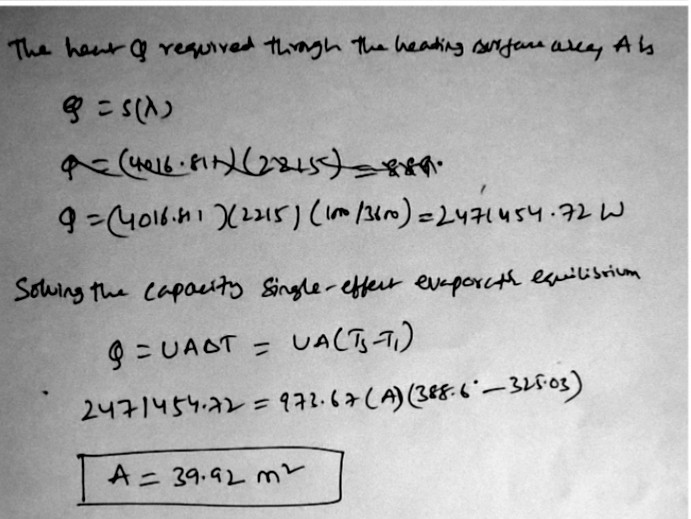 The heat Q required through the heading surface area, A is
Q = S(λ)
Q = (4016.811)(2215) (1000/3600) = 2471454.72 W
Solving the capacity single-effect evaporath equilibrium
Q = UAΔT = UA(Ts-T1)
2471454.72 = 973.67 (A) (388.6 - 325.03)
A = 39.92 m2